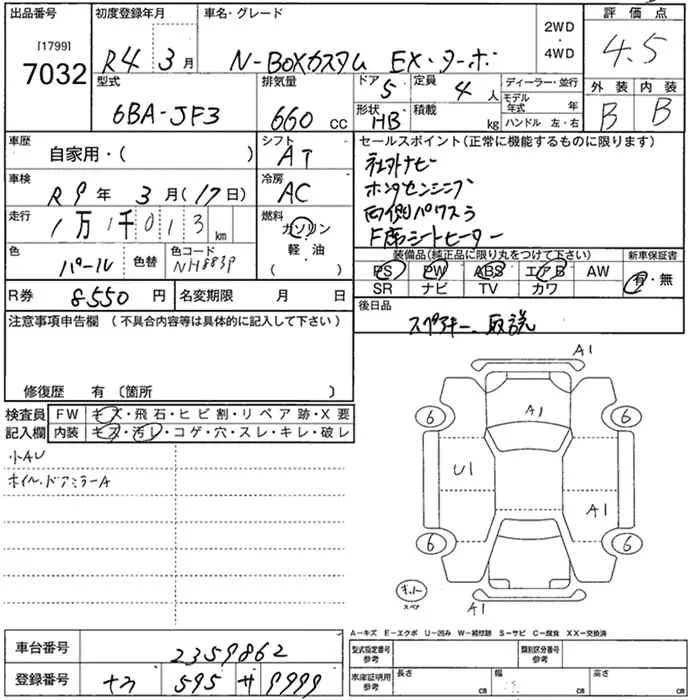 出品番号
[1799]
7032
初度登録年月
R4 3月
車名・グレード
N-BOXカスタム EX・ターボ
2WD
・
4WD
評価点
4.5
型式
6BA-JF3
排気量
660 CC
ドア 5
形状 HB
定員 4 人
積載 kg
ディーラー・並行
モデル年式 年
ハンドル 左・右
外装 内装
B B
車歴
自家用・( )
シフト
AT
車検
R9年 3月(17日)
冷房
AC
走行
1万1千013 km
燃料
ガソリン
軽・油
( )
色
パール
色替
色コード
NH883P
R券 8550 円
名変期限 月 日
セールスポイント(正常に機能するものに限ります)
社外ナビ
ホンダセンシング
両側パワスラ
F席シートヒーター
装備品(純正品に限り丸をつけて下さい)
新車保証書
PS PW ABS エアB AW
SR ナビ TV カワ
有・無
後日品
スペアキー、取説
注意事項申告欄 (不具合内容等は具体的に記入して下さい)
修復歴 有 〔箇所 〕
検査員
記入欄
FW キズ・飛石・ヒビ割・リペア跡・X要
内装 キズ・汚レ・コゲ・穴・スレ・キレ・破レ
小AU
ホイル・ドアミラーA
A1
6 A1 6
U1
A1
6 6
スペア
A1
A-キズ E-エクボ U-凹み W-補修跡 S-サビ C-腐食 XX-交換済
車台番号 2359862
登録番号 595 サ 9999
型式指定番号
参考
類別区分番号
参考
車庫証明用
参考
長さ cm
幅 cm
高さ cm